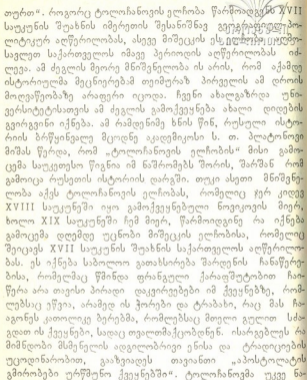 თურთ". როგორც ტოლოჩანოვის ელჩობა წარმოადგენს XVII
საუკუნის შუახნის იმერეთის შესანიშნავ
პოლიტიკურ აღწერილობას, ასევე მიშეცკის ელჩობა
საქართველოს იმავე პერიოდის აღწერილობას იძ-
ლევა. ამ ძეგლის მეორე მნიშვნელობა ის არის, რომ აქამდე
ისტორიულმა მეცნიერებამ თეიმურაზ პირველის ამ დროის
მოღვაწეობაზე არაფერი იცოდა. ჩვენი ახალგაზრდა უნი-
ვერსიტეტისათვის ამ ძეგლის გამოქვეყნება ახალი დიდების
გვირგვინი იქნება. ამ რამდენიმე ხნის წინ, რუსული ისტო-
რიის ბრწყინვალე მცოდნე აკადემიკოსი ს. თ. პლატონოვი
მიშას წერდა, რომ „ტოლოჩანოვის ელჩობის" მისი გამო-
ცემა საუკეთესო წიგნია იმ ნაშრომებს შორის, შარშან რომ
გამოიცა რუსეთის ისტორიის დარგში. თუკი ასეთი მნიშვნე-
ლობა აქვს ტოლოჩანოვის ელჩობას, რომელიც ჯერ კიდევ
XVIII საუკუნეში იყო გამოქვეყნებული ნოვიკოვის მიერ,
ხოლო XIX საუკუნეში ჩემ მიერ, წარმოიდგინე რა იქნება
გამოცემა დღემდე უცნობი მიშეცკის ელჩობისა, რომელიც
შეიცავს XVII საუკუნის შუახნის საქართველოს აღწერილო-
ბას. ეს იქნება საბოლოო გათახსირება შარდენის ჩანაწერე-
ბისა, რომელმაც წმინდა ფრანგული ქარაფშუტობით ჩაი-
წერა არა თავისი პირადი დაკვირვებები იმ ქვეყნებზე, რომ-
ლებსაც ეწვია, არამედ ის ჭორები და ტრაბახი, რაც მას ჩა-
აგონეს კათოლიკე ბერებმა, რომლებსაც მთელი გულით სძა-
გდათ ის ქვეყნები, სადაც თვალთმაქცობდნენ. ისარგებლეს რა
მიმნდობი მსმენელის ადგილობრივი ენისა და ტრადიციების
უცოდინარობით, გააზვიადეს თავიანთი „აპოსტოლატის
გმირობები ურწმუნო ქვეყნებში". ტოლოჩანოვმა უკვე ნა-